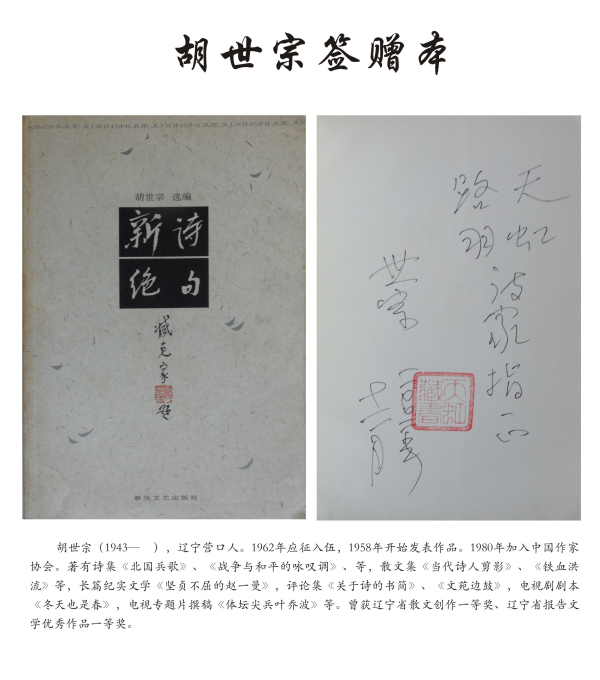 胡世宗签赠本
XINSHIJUEJU XINSHIJUEJU XINSHIJUEJU XINSHIJUEJU
胡世宗 选编
新诗
绝句
臧克家
题
春风文艺出版社
天虹
路羽
诗家指正
世宗
十二月
天虹
藏書
胡世宗（1943— ），辽宁营口人。1962年应征入伍，1958年开始发表作品。1980年加入中国作家
协会。著有诗集《北国兵歌》、《战争与和平的咏叹调》、等，散文集《当代诗人剪影》、《铁血洪
流》等，长篇纪实文学《坚贞不屈的赵一曼》，评论集《关于诗的书简》、《文苑边鼓》，电视剧剧本
《冬天也是春》，电视专题片撰稿《体坛尖兵叶乔波》等。曾获辽宁省散文创作一等奖、辽宁省报告文
学优秀作品一等奖。